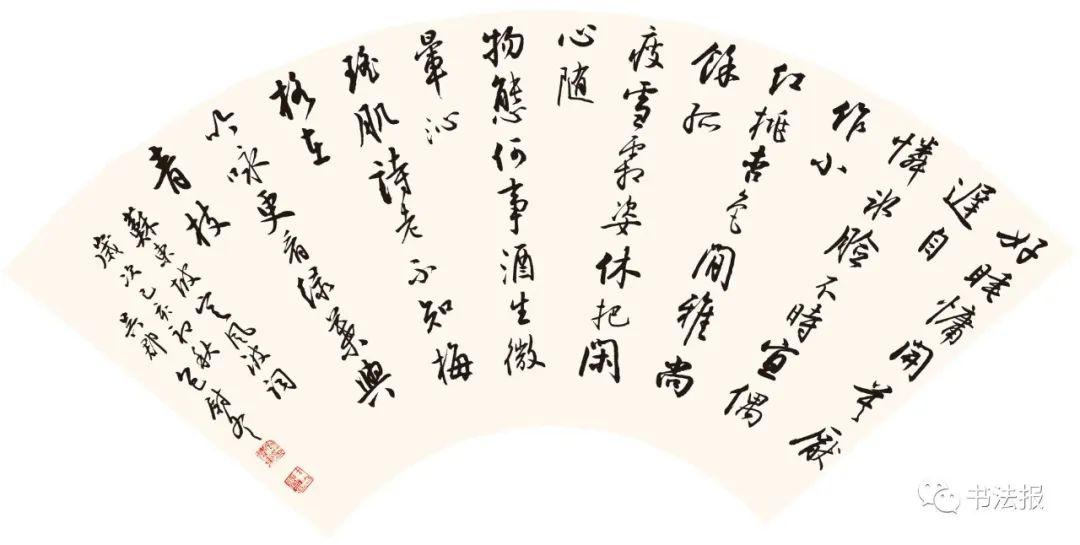 好睡慵開莫厭
遲自
憐冰臉不時宜偶
作小
紅桃杏色閒雅尚
餘孤
瘦雪霜姿休把閑
心随
物態何事酒生微
暈沁
瑶肌詩老不知梅
格在
吟咏更看緑葉與
青枝
蘇東坡定風波詞
歲次己亥初秋
吳郡
书法报